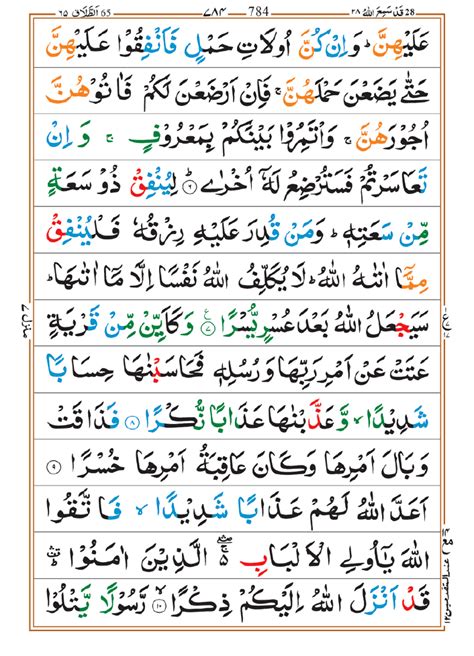 28 قَدْ سَمِعَ اللّٰهُ ٢٨ 784 ٧٨٤ 65 اَلطَّلَاق ٦٥
عَلَيْهِنَّ ؕ وَاِنْ كُنَّ اُولَاتِ حَمْلٍ فَاَنْفِقُوْا عَلَيْهِنَّ
حَتّٰى يَضَعْنَ حَمْلَهُنَّ ۚ فَاِنْ اَرْضَعْنَ لَكُمْ فَاٰتُوْهُنَّ
اُجُوْرَهُنَّ ۚ وَاْتَمِرُوْا بَيْنَكُمْ بِمَعْرُوْفٍ ۚ وَاِنْ
تَعَاسَرْتُمْ فَسَتُرْضِعُ لَهٗۤ اُخْرٰى ۝۶ لِيُنْفِقْ ذُوْ سَعَةٍ
مِّنْ سَعَتِهٖ ؕ وَمَنْ قُدِرَ عَلَيْهِ رِزْقُهٗ فَلْيُنْفِقْ
مِمَّاۤ اٰتٰىهُ اللّٰهُ ؕ لَا يُكَلِّفُ اللّٰهُ نَفْسًا اِلَّا مَاۤ اٰتٰىهَا ؕ
سَيَجْعَلُ اللّٰهُ بَعْدَ عُسْرٍ يُّسْرًا ۝۷ ع وَكَاَيِّنْ مِّنْ قَرْيَةٍ
عَتَتْ عَنْ اَمْرِ رَبِّهَا وَرُسُلِهٖ فَحَاسَبْنٰهَا حِسَابًا
شَدِيْدًا ۙ وَّعَذَّبْنٰهَا عَذَابًا نُّكْرًا ۝۸ فَذَاقَتْ
وَبَالَ اَمْرِهَا وَكَانَ عَاقِبَةُ اَمْرِهَا خُسْرًا ۝۹
اَعَدَّ اللّٰهُ لَهُمْ عَذَابًا شَدِيْدًا ۙ فَاتَّقُوا
اللّٰهَ يٰۤاُولِى الْاَلْبَابِ ۛۚ الَّذِيْنَ اٰمَنُوْا ۛؕ
قَدْ اَنْزَلَ اللّٰهُ اِلَيْكُمْ ذِكْرًا ۝۱۰ رَّسُوْلًا يَّتْلُوْا
منزل ٧